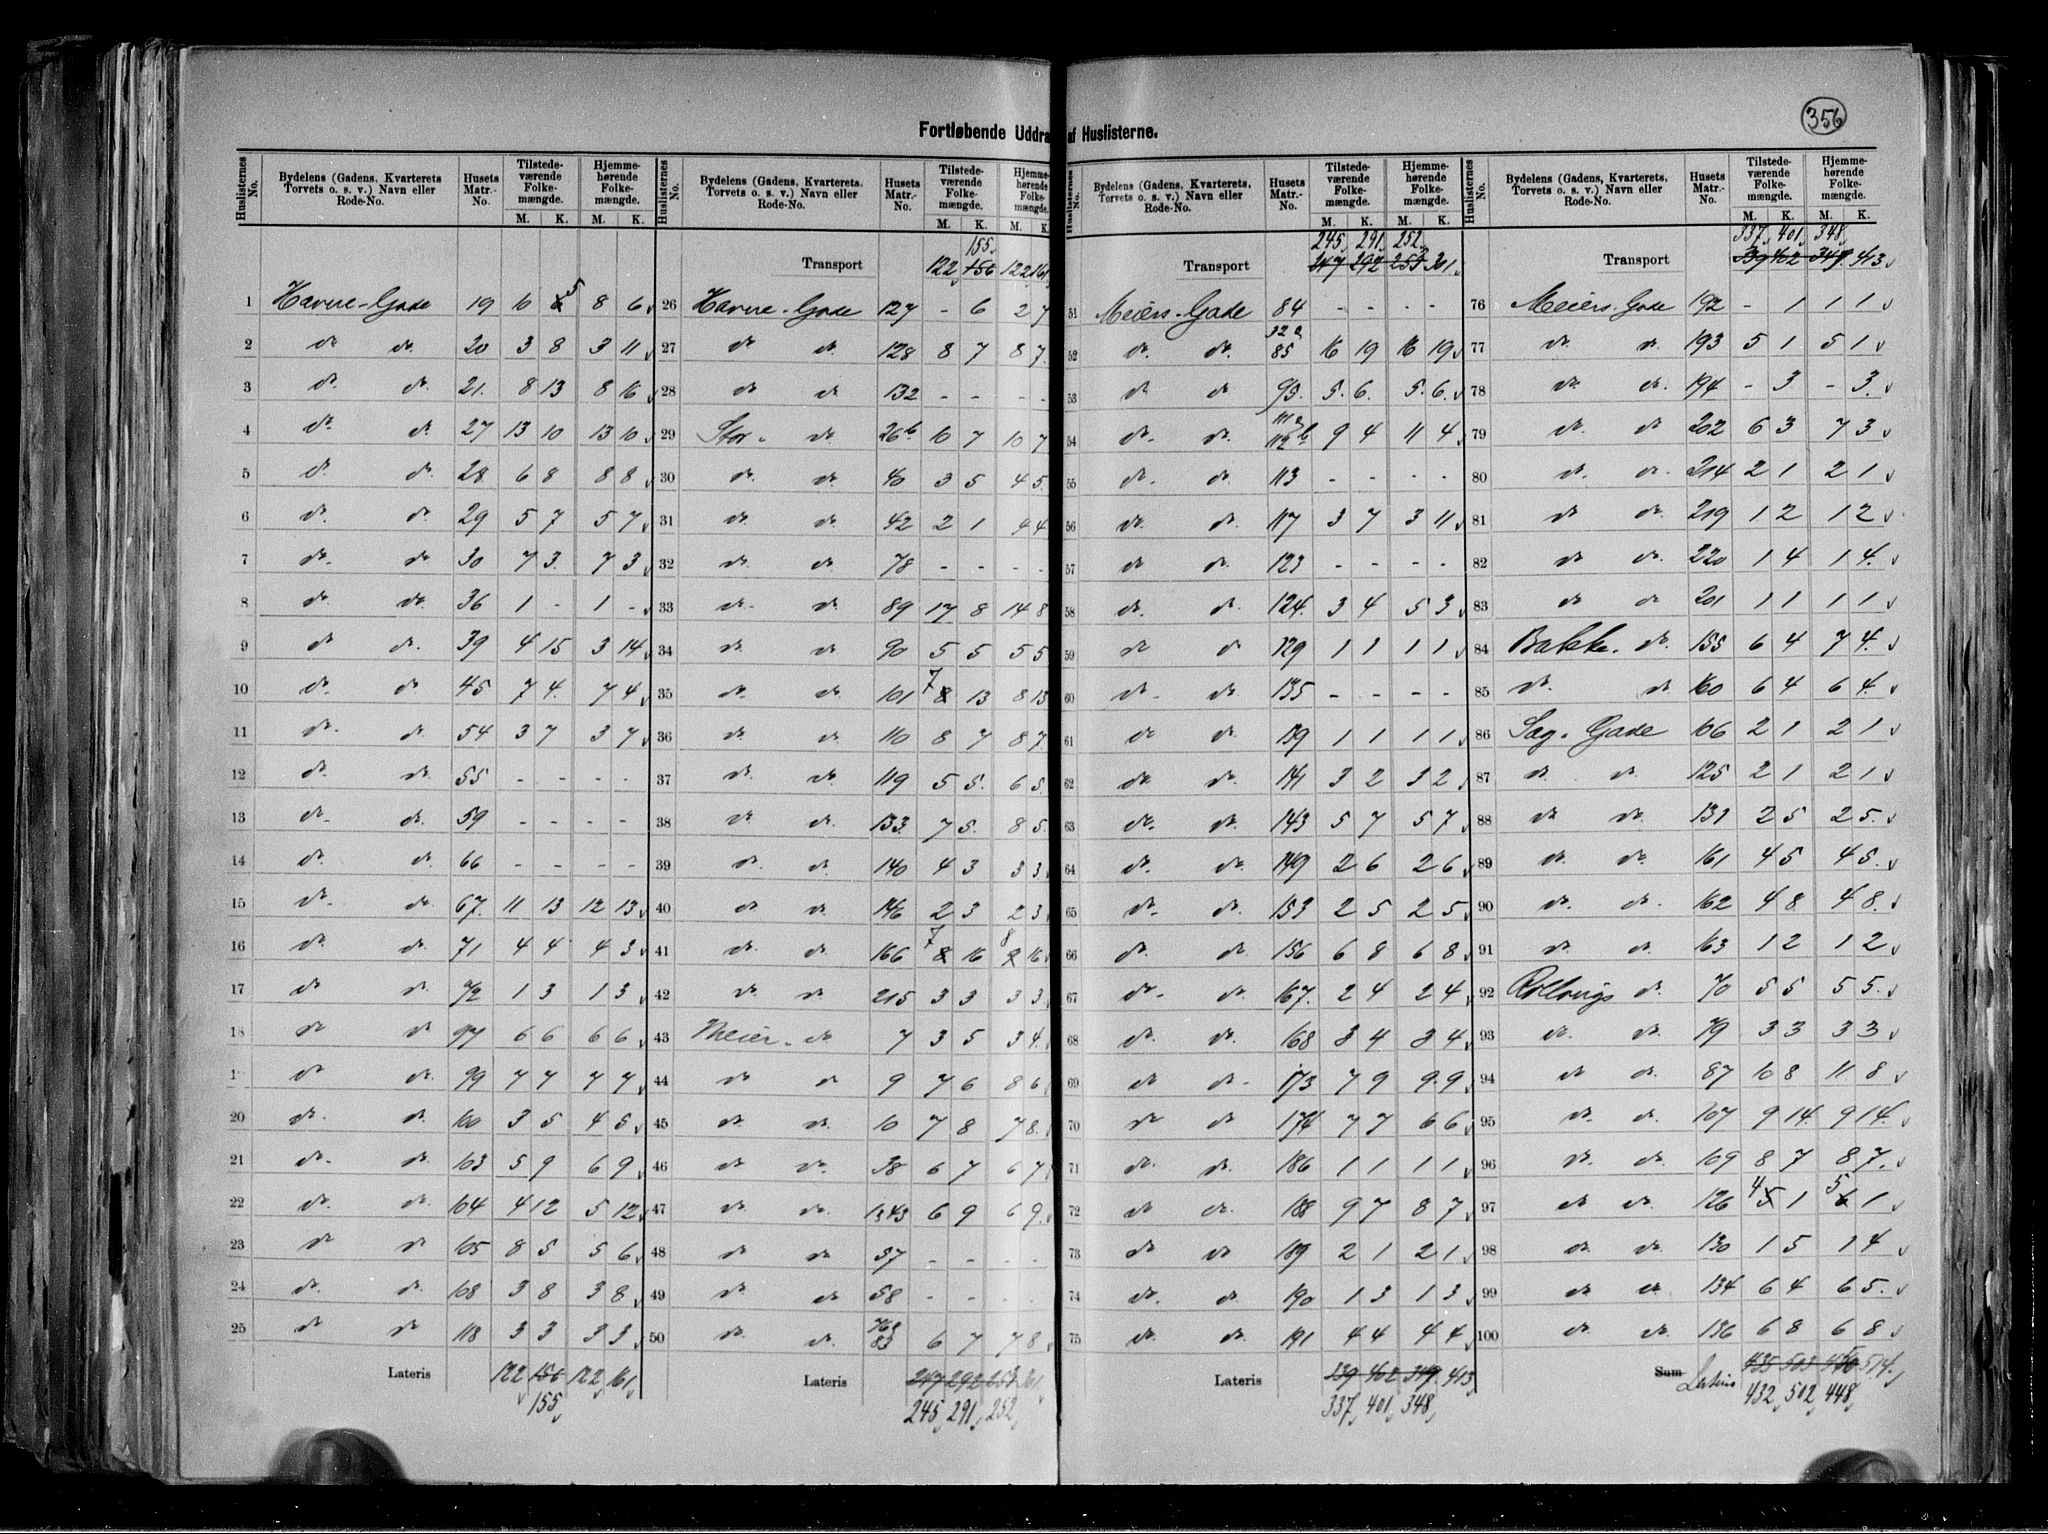 356
Fortløbende Uddra af Huslisterne.
Huslisternes No. Bydelens (Gadens, Kvarterets, Torvets o. s. v.) Navn eller Rode-No. Husets Matr.-No. Tilstede-værende Folke-mængde. M. K. Hjemme-hørende Folke-mængde. M. K.
1 Havne-Gade 19 10 6 5 8 6
2 do do. 20 3 8 3 11
3 do. do. 21. 8 13 8 16
4 do. do. 27 13 10 13 10
5 do. do. 28 6 8 8 8
6 do. do. 29 5 7 5 7
7 do. do 30 7 3. 7 3
8 do. do. 36 1 - 1 -
9 do do. 39 4 15 3 14
10 do. do 45 7 4. 7 4
11 do. do. 54 3 7 3 7
12 do. do. 55 - - - -
13 do. do. 59 - - - -
14 do. do. 66 - - - -
15 do. do. 67. 11 13 12 13
16 do. do. 71 4 4 4 3
17 do do. 72 1 3 1 3
18 do do 97 6 6 6 6
1 do do. 99 7 7 7 7
20 do. do. 100 3 5 4 5
21 do. do. 103 5 9 6 9
22 do. do. 104 4 12 5 12
23 do do 105 8 5 5 6
24 do. do. 108 3 8 3 8
25 do do 118 3 3 3 3
Lateris 122 156 122 161
155
Huslisternes No. Bydelens (Gadens, Kvarterets, Torvets o. s. v.) Navn eller Rode-No. Husets Matr.-No. Tilstede-værende Folke-mængde. M. K. Hjemme-hørende Folke-mængde. M. K.
155
Transport 122 156 122 161
26 Havne-Gade 127 - 6 2 7
27 do do. 128 8 7 8 7.
28 do. do 132 - - - -
29 Stor- do. 26b 10 7 10 7
30 do. do. 40 3 5 4 5
31 do. do. 42 2 1 4 4
32 do. do. 78 - - - -
33 do. do 89 17 8 14 8
34 do. do. 90 5 5 5 5
35 do. do. 101 7 8 13 8 13
36 do. do. 110 8 7 8 7
37 do. do. 119 5 5. 6 5.
38 do do. 133. 7 5. 8 5.
39 do. do. 140 4 3 3 3
40 do do. 146 2 3 2 3
41 do. do. 166 7 8 16 8 9 16
42 do. do 215 3 3 3 3
43 Meier- do 7 3 5 3 4.
44 do do 9 7 6 8 6
45 do. do. 10 7 8 7 8.
46 do do. 38 6 7 6 7
47 do do. 43 6 9 6 9.
48 do do 57 - - - -
49 do. do 58 - - - -
50 do. do. 83 6 7 7 8
Lateris 247 292 253 301
245 291 252
Huslisternes No. Bydelens (Gadens, Kvarterets, Torvets o. s. v.) Navn eller Rode-No. Husets Matr.-No. Tilstede-værende Folke-mængde. M. K. Hjemme-hørende Folke-mængde. M. K.
245 291 252
Transport 247 292 253 301
51 Meiers-Gade 84 - - - -
52 do. do. 85 16 19 16 19
53 do do 93. 5. 6. 5. 6.
54 do. do. 111a 112b 9 4 11 4
55 do. do. 113 - - - -
56 do. do. 117 3 7 3 11
57 do do. 123 - - - -
58 do. do. 124. 3 4 5 3
59 do do 129 1 1 1 1
60 do. do 135 - - - -
61 do do. 139 1 1 1 1
62 do do. 141 3 2 3 2
63 do. do. 143 5 7 5 7
64 do. do 149 2 6 2 6
65 do. do. 153 2 5 2 5
66 do. do. 156 6 8 6 8
67 do. do. 167. 2 4 2 4
68 do. do. 168 3 4 3 4
69 do do. 173 7 9 9. 9
70 do do 174 7 7 6 6
71 do. do. 186 1 1 1 1
72 do do. 188 9 7 8 7
73 do do 189 2 1 2 1
74 do. do. 190 1 3 1 3
75 do. do. 191 4 4 4 4
Lateris 339 402 349. 413
337 401 348
Huslisternes No. Bydelens (Gadens, Kvarterets, Torvets o. s. v.) Navn eller Rode-No. Husets Matr.-No. Tilstede-værende Folke-mængde. M. K. Hjemme-hørende Folke-mængde. M. K.
337 401 348
Transport 339 402 349. 413
76 Meiers-Gade 192 - 1 1 1
77 do do. 193 5 1 5 1
78 do. do. 194 - 3 - 3.
79 do. do. 202 6 3 7 3
80 do. do. 214 2 1 2 1
81 do do. 219 1 2 1 2
82 do do. 220 1 4 1 4.
83 do do 201 1 1 1 1
84 Bakke- do. 155 6 4 7 4.
85 do. do 160 6 4 6 4.
86 Sag-Gade 106 2 1 2 1
87 do. do. 125 2 1 2 1
88 do do. 131 2 5 2 5.
89 do. do. 161 4 5 4 5.
90 do. do. 162 4 8 4 8.
91 do do. 163 1 2 1 2
92 Rollvigs do. 70 5 5 5 5.
93 do. do. 79 3 3 3 3
94 do do. 87 10 8 11 8
95 do. do. 107 9 14. 9 14.
96 do. do. 109 8 7 8 7.
97 do do. 126 4 5 1 5 6 1
98 do. do. 130 1 5 1 4
99 do do. 134 6 4 6 5.
100 do do. 136 6 8 6 8
Sum Lateris 435 503 450 514.
432 502 448